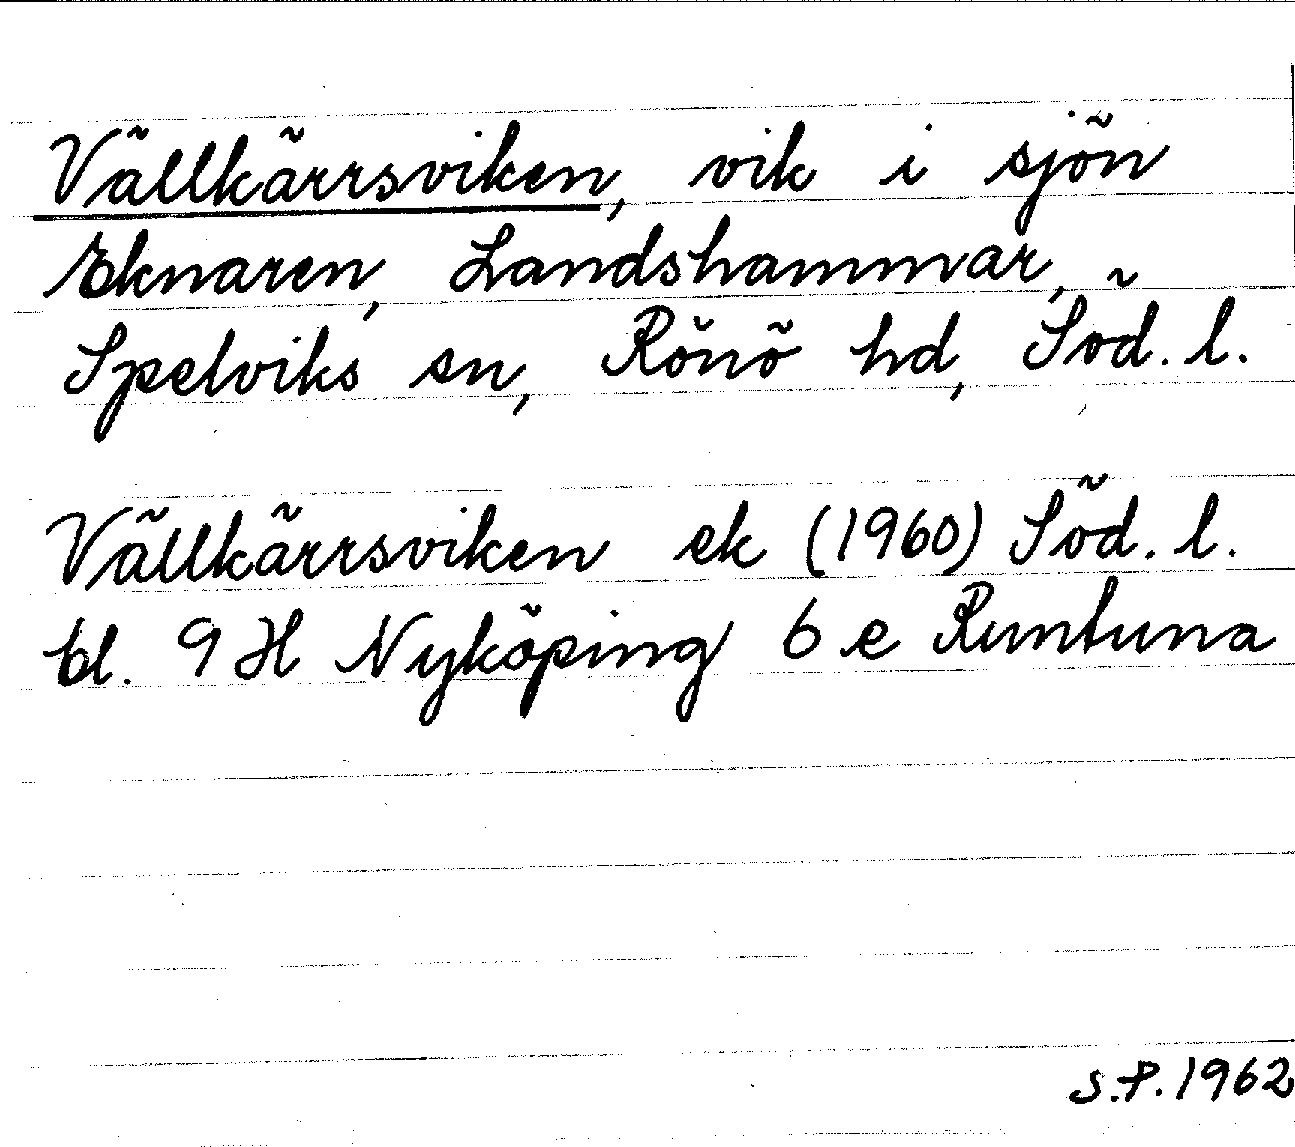 Vällkärrsviken, vik i sjön
Eknaren, Landshammar,
Spelviks sn, Rönö hd, Söd. l.
Vällkärrsviken ek (1960) Söd. l.
bl. 9 H Nyköping 6 e Runtuna
S.P. 1962